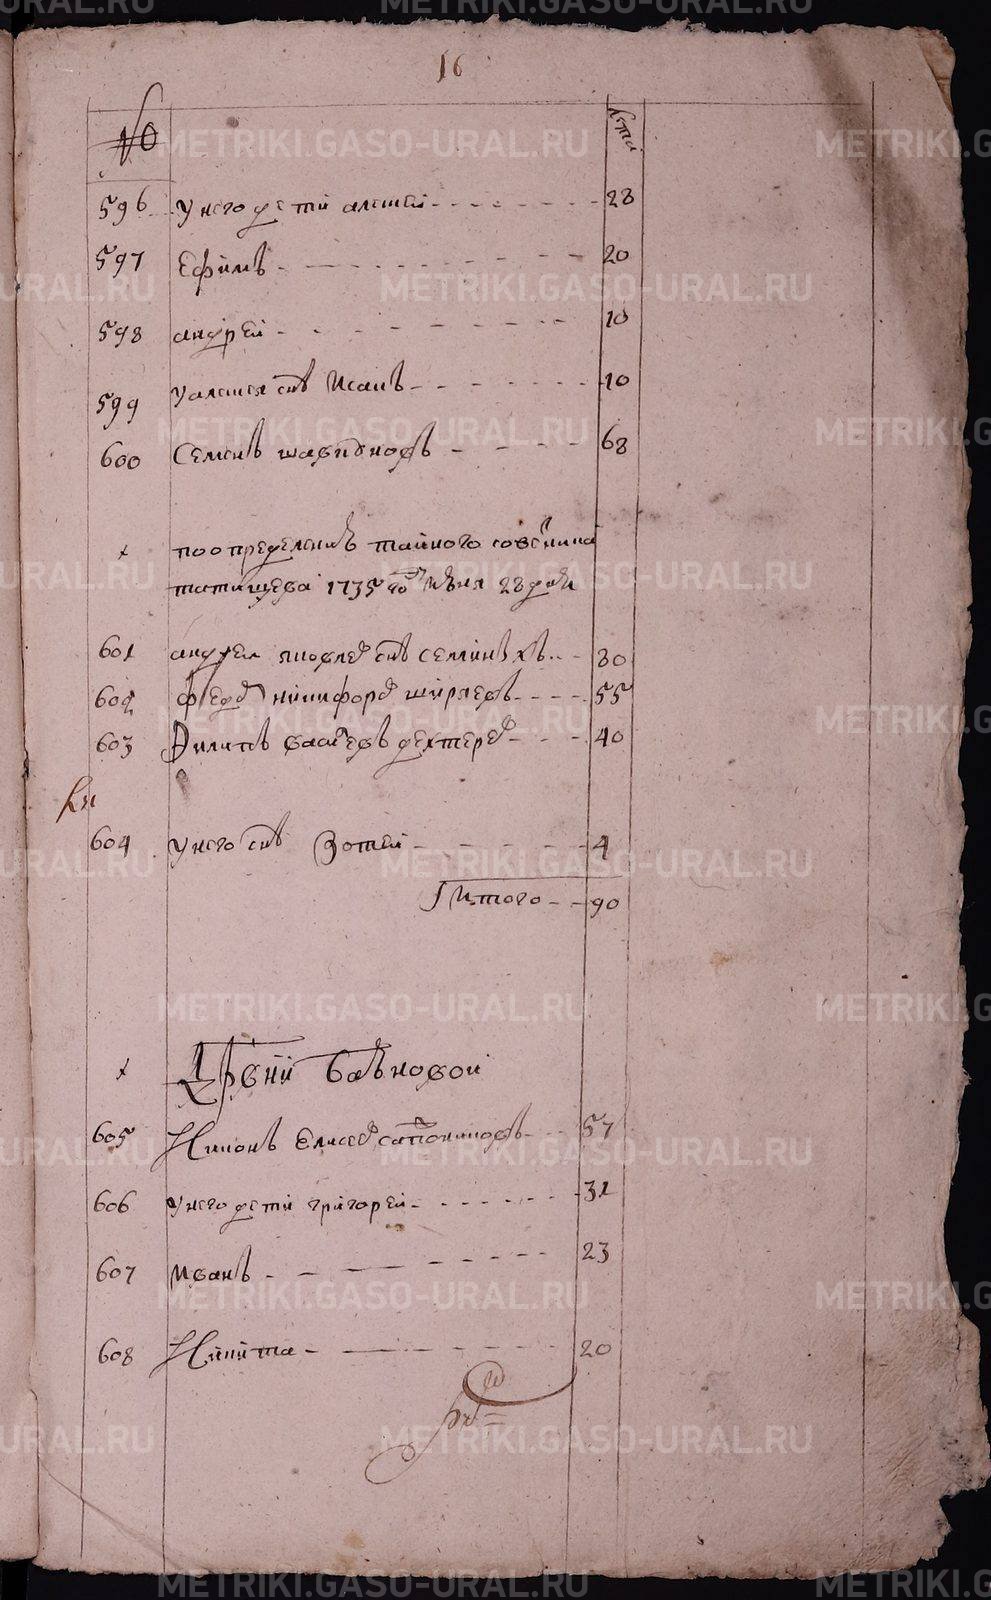 16
№ лета
596 у него дети алексей 28
597 Ефимъ 20
598 андрей 10
599 у алексея снъ Исакъ 10
600 Семенъ 68
по определению тайного советника
татищева 1735 году июня 28 дня
601 андрей снъ 30
602 Федор никифоров ширяевъ 55
603 Филипъ василевъ дехтерев 40
604 у него снъ Зотей 4
Итого 90
Дрвни баевновой
605 Никонъ Елисеев сапожниковъ 57
606 у него дети григорей 31
607 иванъ 23
608 Никита 20
METRIKI.GASO-URAL.RU